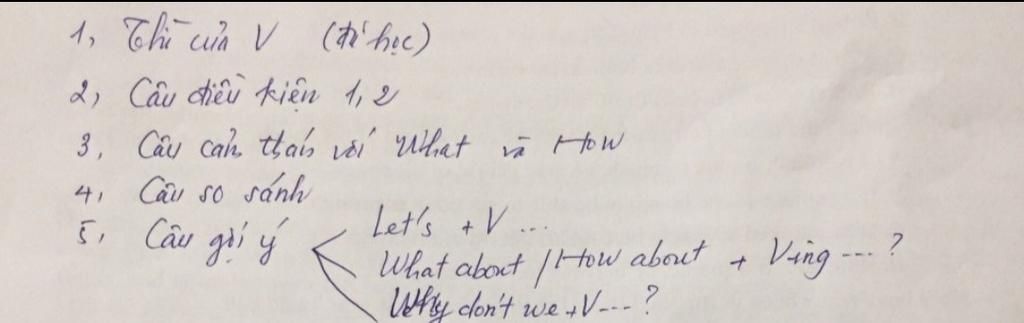 1, Thì của V (đã học)
2, Câu điều kiện 1, 2
3, Câu cảm thán với What và How
4, Câu so sánh
5, Câu gợi ý
Let's + V ...
What about / How about + V-ing ...?
Why don't we + V...?